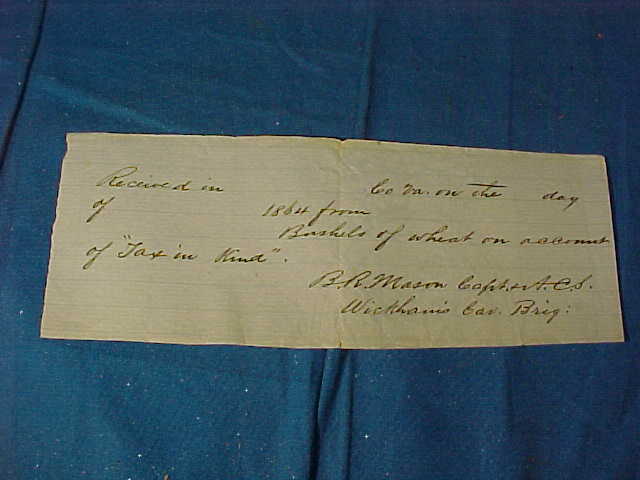 Received in Co Va. on the day
of 1864 from
Bushels of wheat on account
of "Tax in Kind".
B. R. Mason Capt. & A. C. S.
Wickham's Cav. Brig: